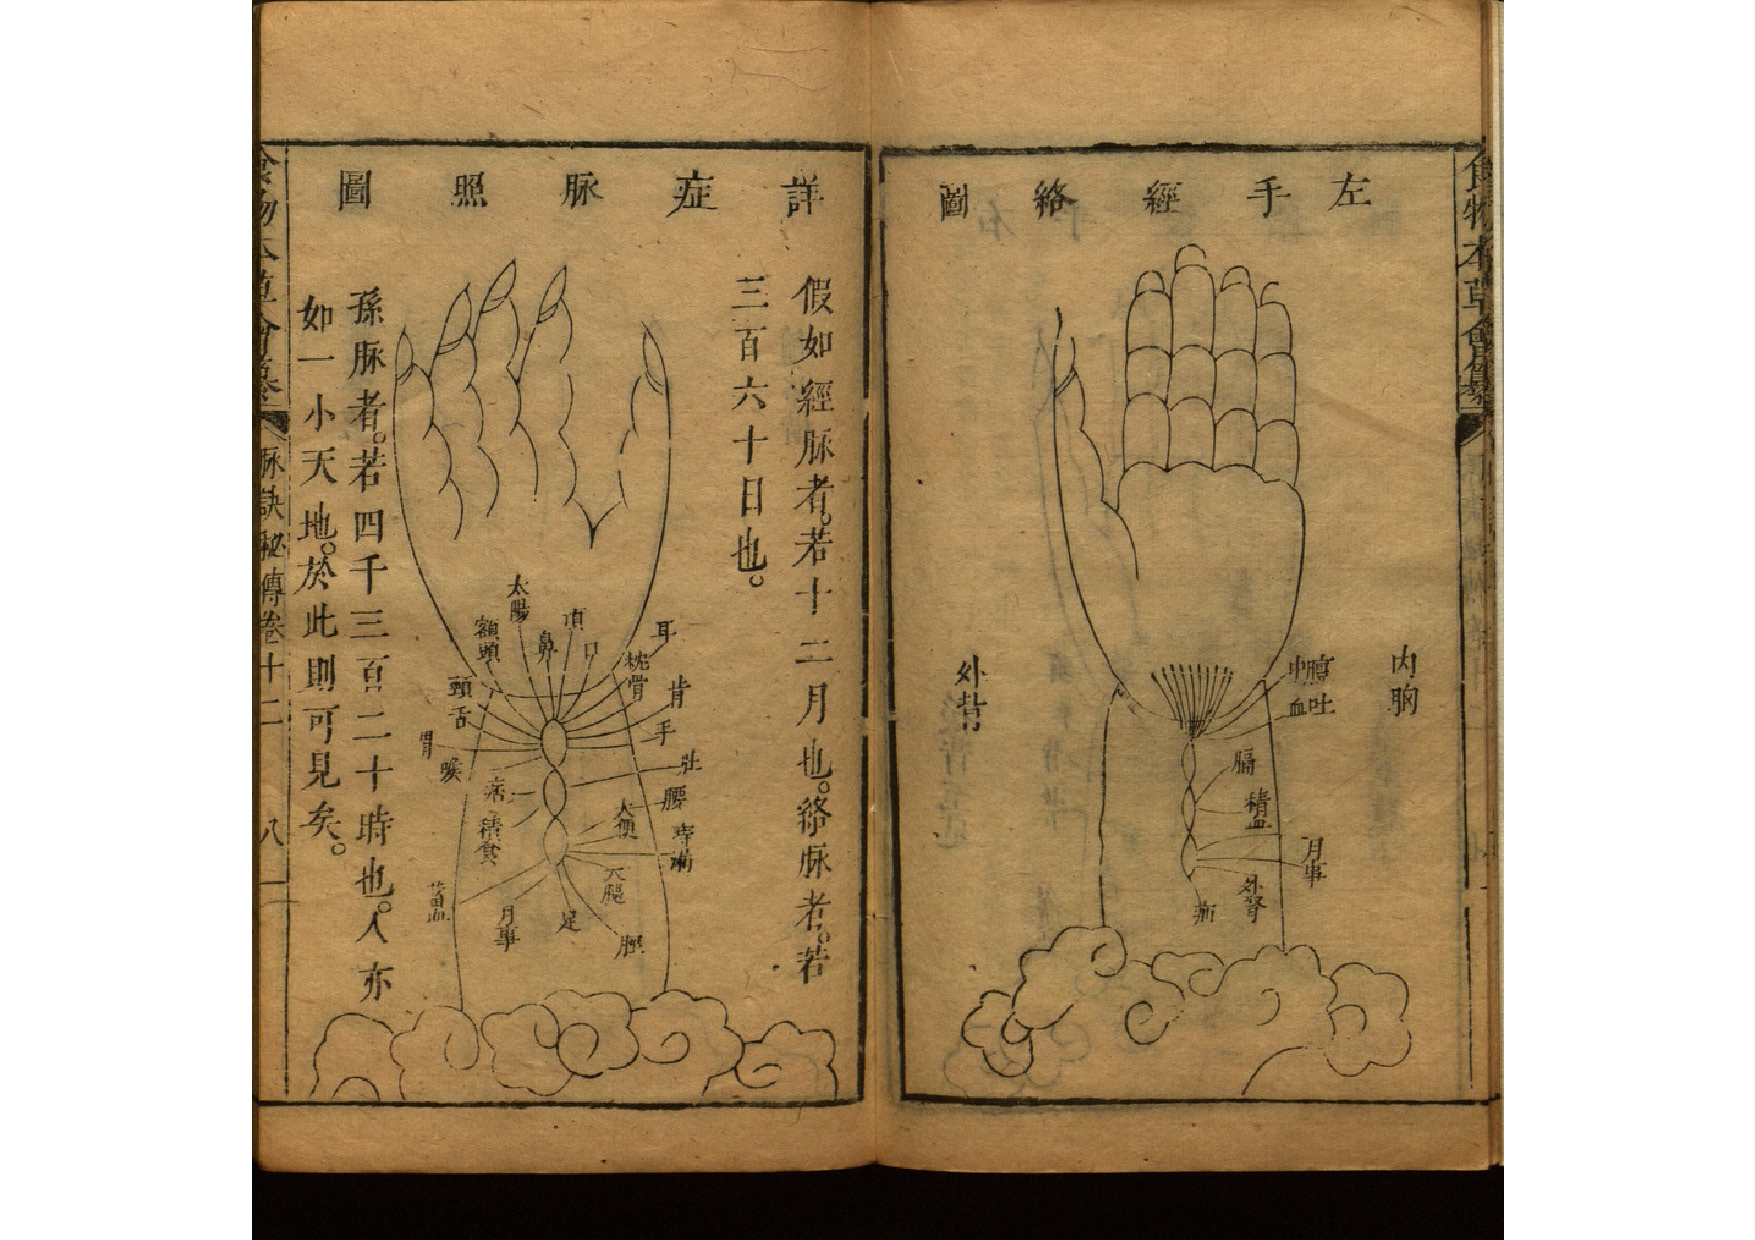 食物本草會纂
左手經絡圖
內胸
吐
中
血
膈
積血
月事
外腎
外背
詳症脉照圖
假如經脉者。若十二月也。絡脉者。若
三百六十日也。
耳
枕骨
項
口
鼻
太陽
額頭
頭
舌
胃
喉
手
肚
腰
大便
大腿
積食
蓄血
月事
足
孫脉者。若四千三百二十時也。人亦
如一小天地。於此則可見矣。
食物本草會纂
脉訣秘傳卷十二
八